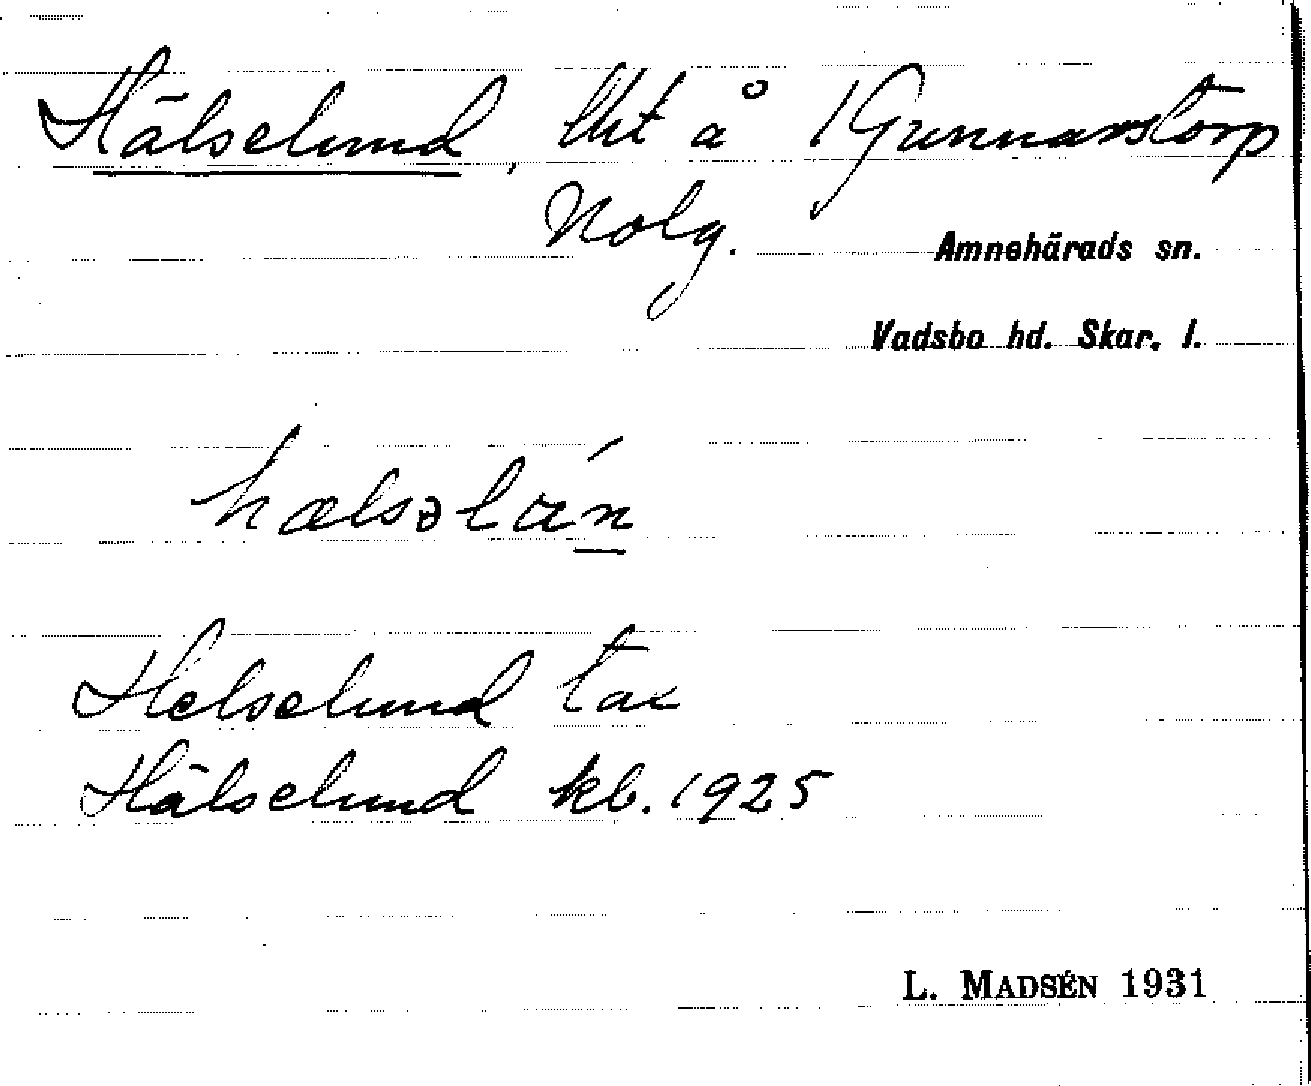 Hälselund, lht å /Gunnarstorp
Nolg.
Amnehärads sn.
Vadsbo hd. Skar. l.
hælsəlán
Helselund tax
Hälselund kb. 1925
L. MADSÉN 1931